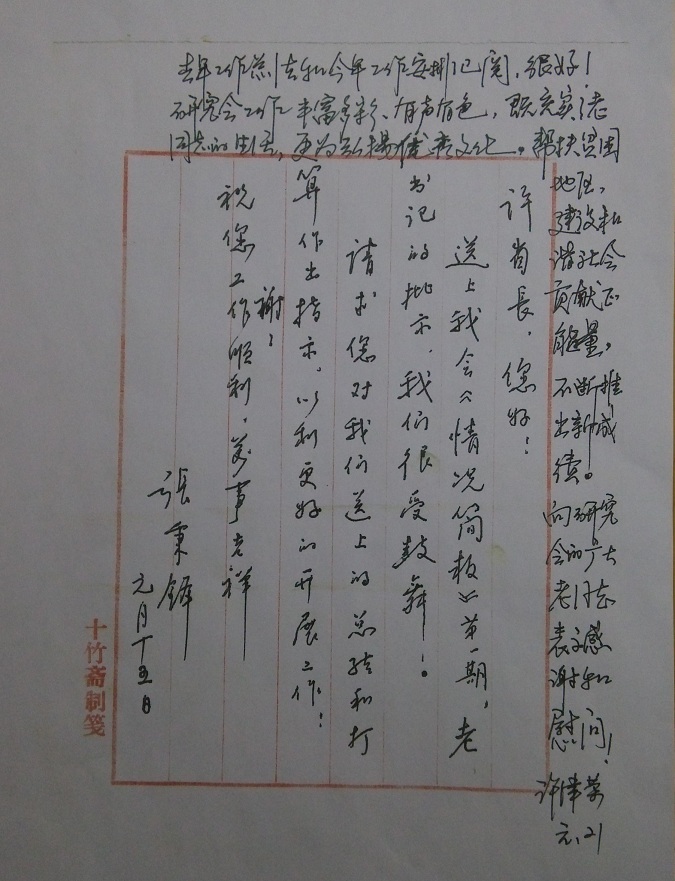 去年工作总结和今年工作安排已阅，很好！
研究会工作丰富多彩、有声有色，既充实了老
同志的生活，更为弘扬优秀文化。帮扶贫困
地区，
建设和
谐社会
贡献正
能量，
不断推
出新成
绩。
向研究
会的广大
老同志
表示感
谢和
慰问！
许津荣
元.21
许省长，您好！
送上我会《情况简报》第一期，老
书记的批示，我们很受鼓舞！。
请求您对我们送上的总结和打
算作出指示。以利更好的开展工作！
谢！
祝您工作顺利，万事吉祥
张秉铎
元月十五日
十竹斋制笺